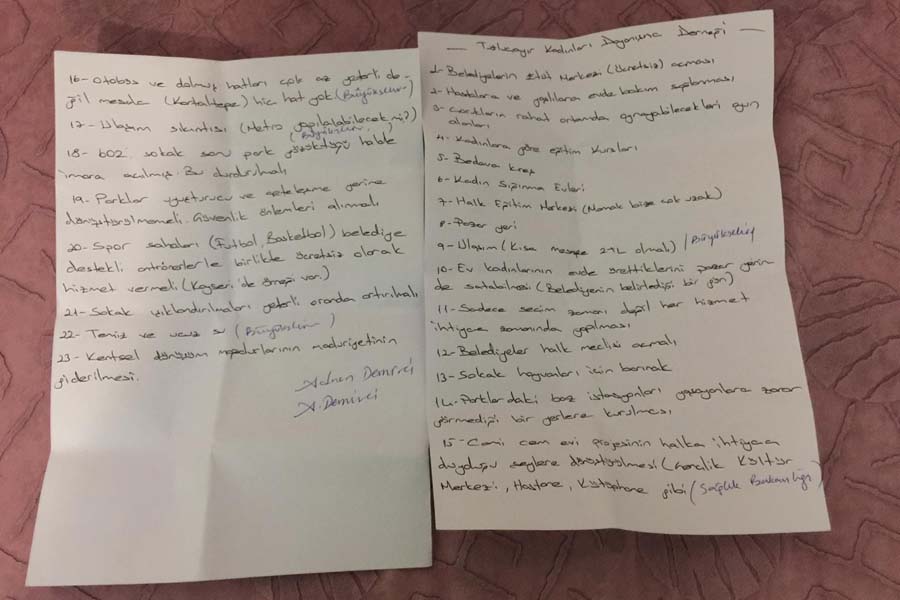 — Tuzluçayır Kadınları Dayanışma Derneği —
1- Belediyelerin Etüt Merkezi (Ücretsiz) açması
2- Hastalara ve yaşlılara evde bakım sağlanması
3- Çocukların rahat ortamda oynayabilecekleri oyun
alanları
4- Kadınlara göre eğitim kursları
5- Bedava kreş
6- Kadın Sığınma Evleri
7- Halk Eğitim Merkezi (Mamak bize çok uzak)
8- Pazar yeri
9- Ulaşım (Kısa mesafe 2 TL olmalı) / Büyükşehir
10- Ev kadınlarının evde ürettiklerini pazar yerin
de satabilmesi (Belediyenin belirlediği bir gün)
11- Sadece seçim zamanı değil her hizmet
ihtiyaç zamanında yapılması
12- Belediyeler halk meclisi açmalı
13- Sokak hayvanları için barınak
14- Parklardaki baz istasyonları yaşayanlara zarar
görmediği bir yerlere kurulması
15- Cami cem evi projesinin halka ihtiyaca
duyduğu şeylere dönüştürülmesi (Gençlik Kültür
Merkezi, Hastane, Kütüphane gibi (Sağlık Bakanlığı)
16- Otobüs ve dolmuş hatları çok az yeterli de-
ğil mesela (Kartaltepe) hiç hat yok (Büyükşehir)
17- Ulaşım sıkıntısı (Metro yapılalabilecek mi?)
(Büyükşehir)
18- 602. sokak sonu park gözüktüğü halde
imara açılmış. Bu durdurulmalı
19- Parklar uyuşturucu ve çeteleşme yerine
dönüştürülmemeli. Güvenlik önlemleri alınmalı
20- Spor sahaları (Futbol, Basketbol) belediye
destekli antrönerlerle birlikte ücretsiz olarak
hizmet vermeli (Kayseri'de örneği var.)
21- Sokak ışıklandırılmaları yeterli oranda artırılmalı
22- Temiz ve ucuz su (Büyükşehir)
23- Kentsel dönüşüm mağdurlarının mağduriyetinin
giderilmesi.
Adnan Demirci
A. Demirci